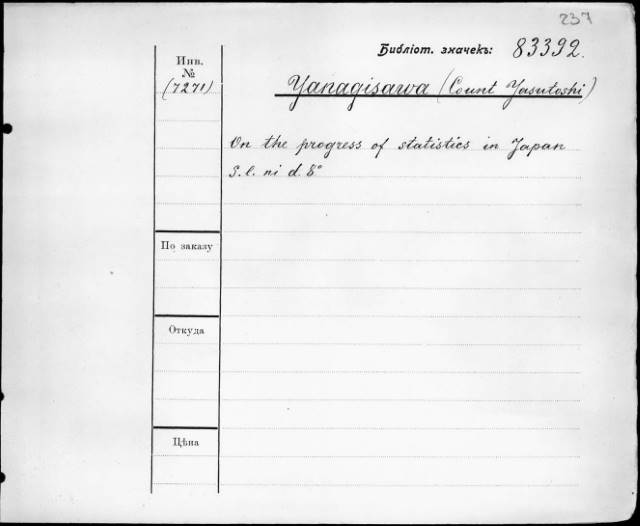 237
Библіот. значекъ: 83392.
Инв.
№
(7271)
Yanagisawa (Count Yasutoshi)
On the progress of statistics in Japan
S. l. ni d. 8°
По заказу
Откуда
Цѣна